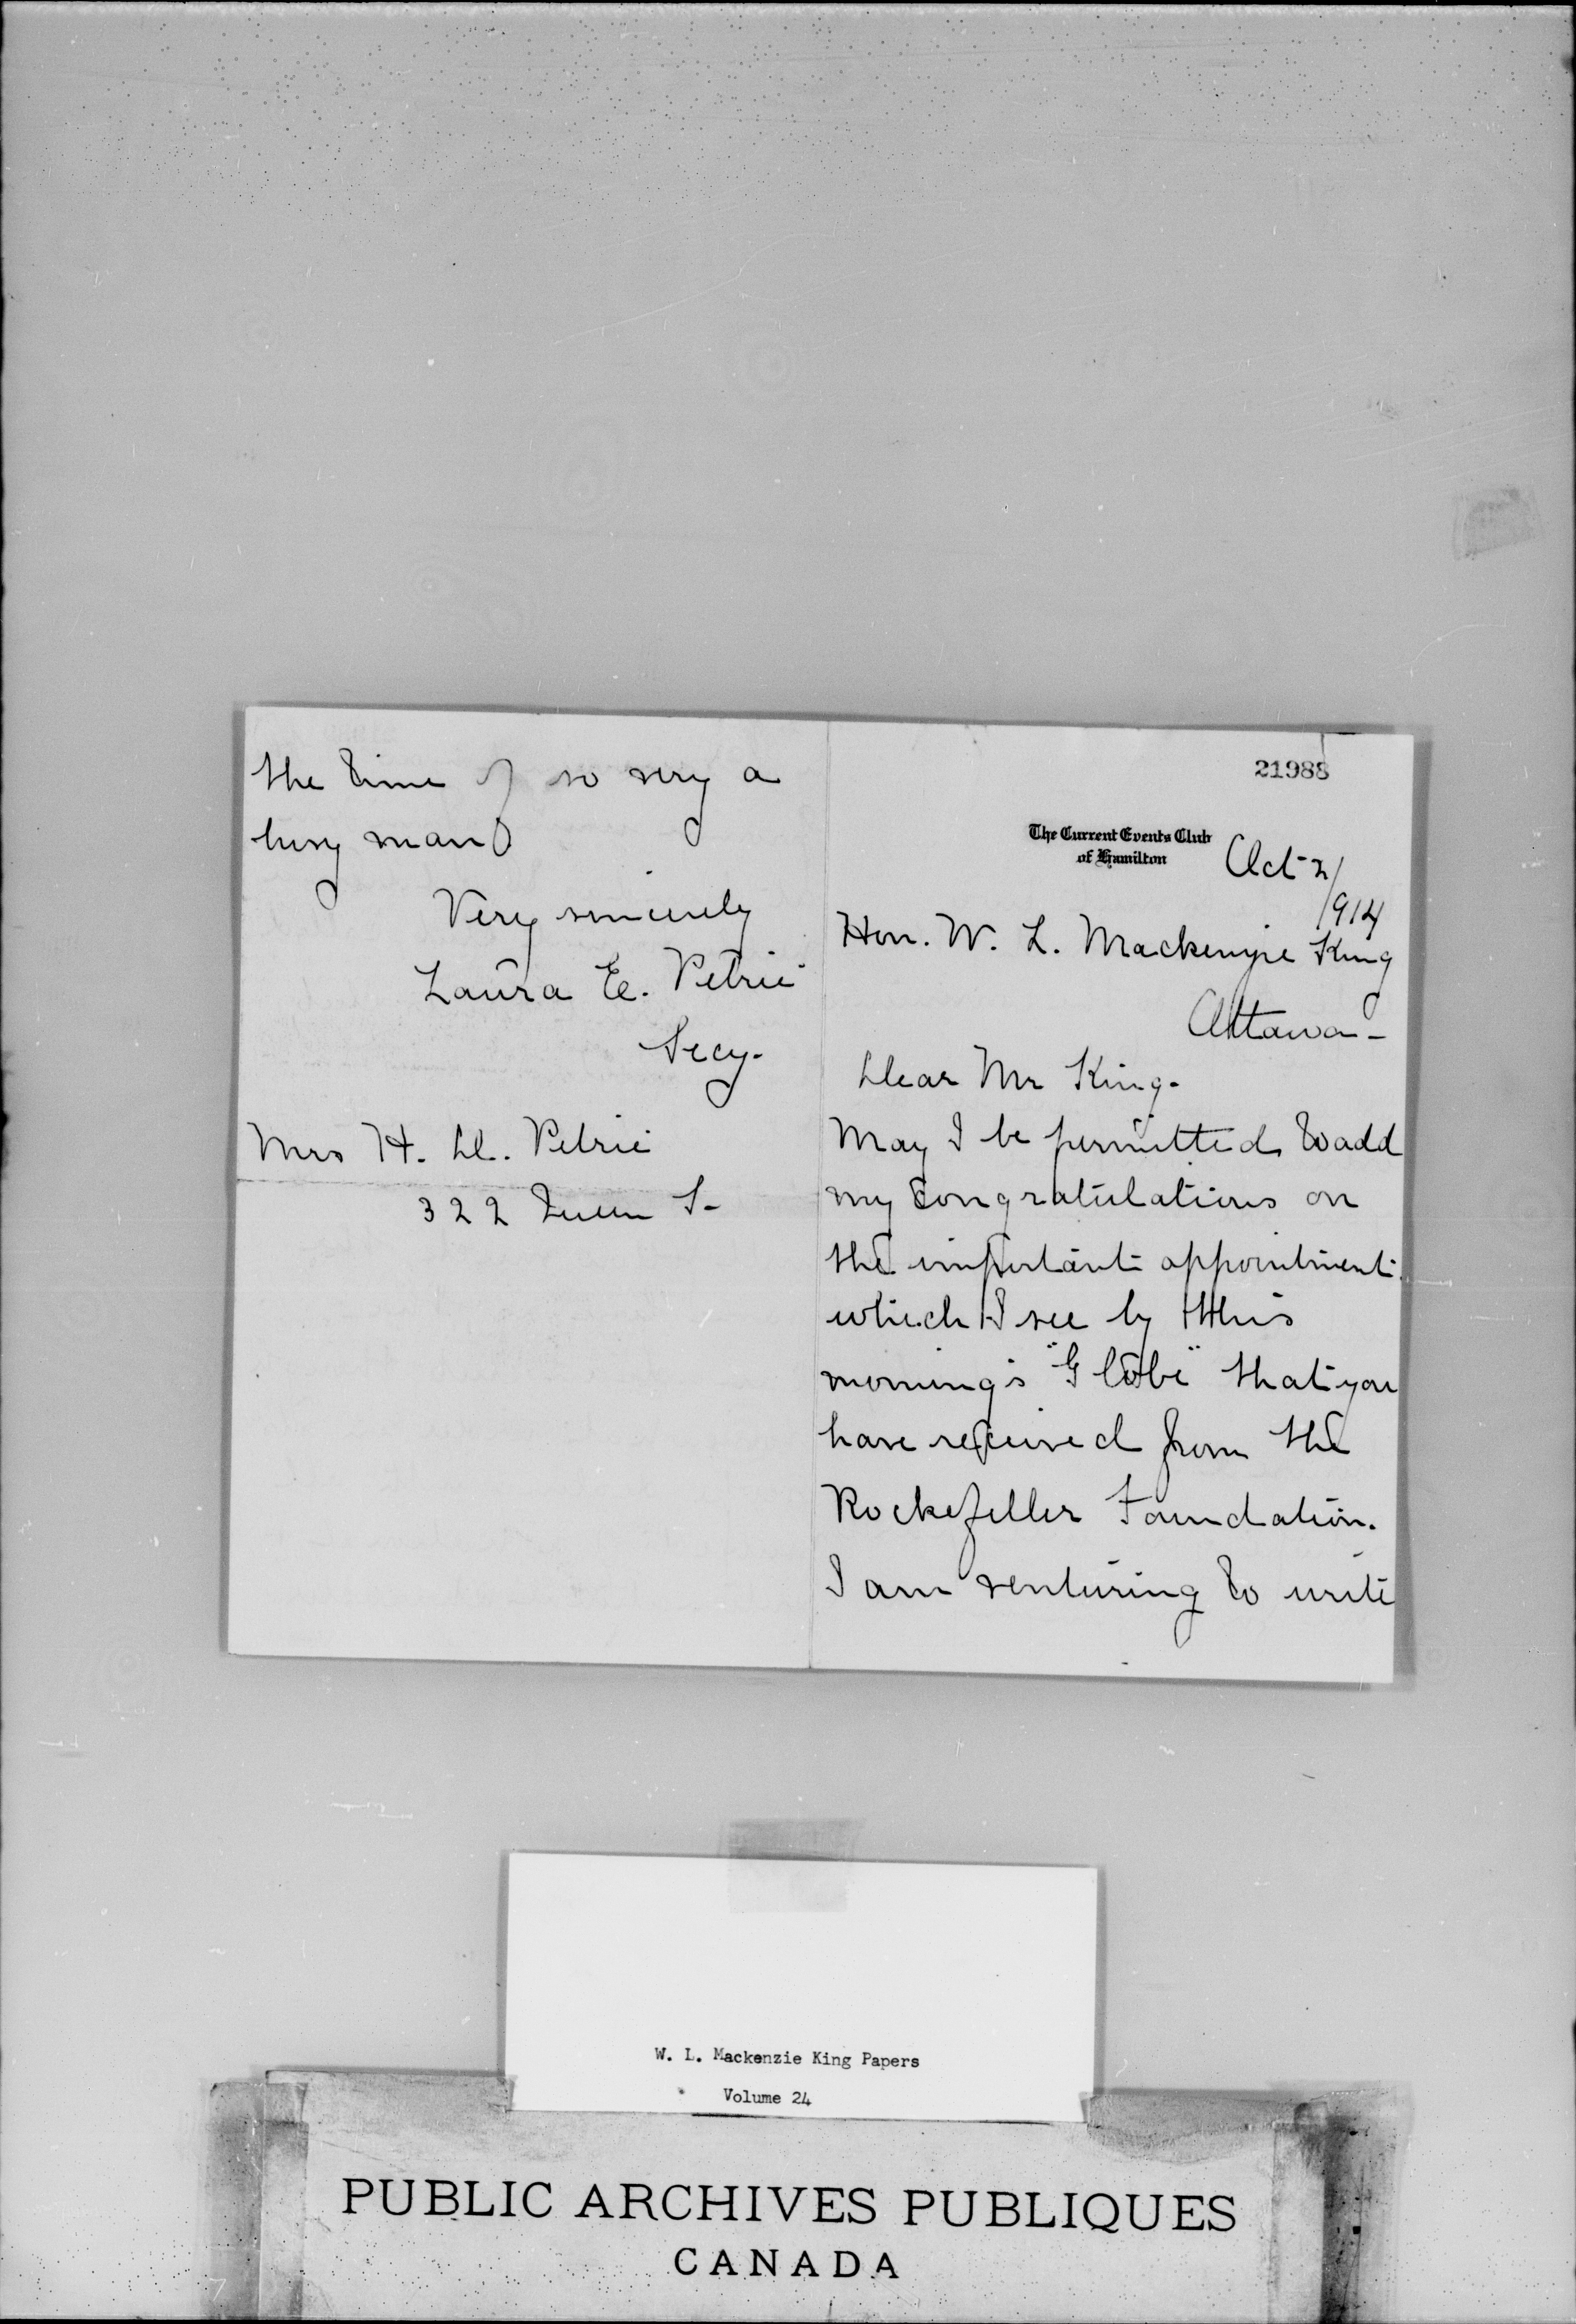 the time of so very a
busy man
Very sincerely
Laura E. Petrie
Secy.
Mrs H. D. Petrie
322 Queen S-
21988
The Current Events Club
of Hamilton
Oct 2/
1914
Hon. W. L. Mackenzie King
Ottawa-
Dear Mr King-
May I be permitted to add
my congratulations on
the important appointment
which I see by this
morning's "Globe" that you
have received from the
Rockefeller Foundation.
I am venturing to write
W. L. Mackenzie King Papers
Volume 24
PUBLIC ARCHIVES PUBLIQUES
CANADA